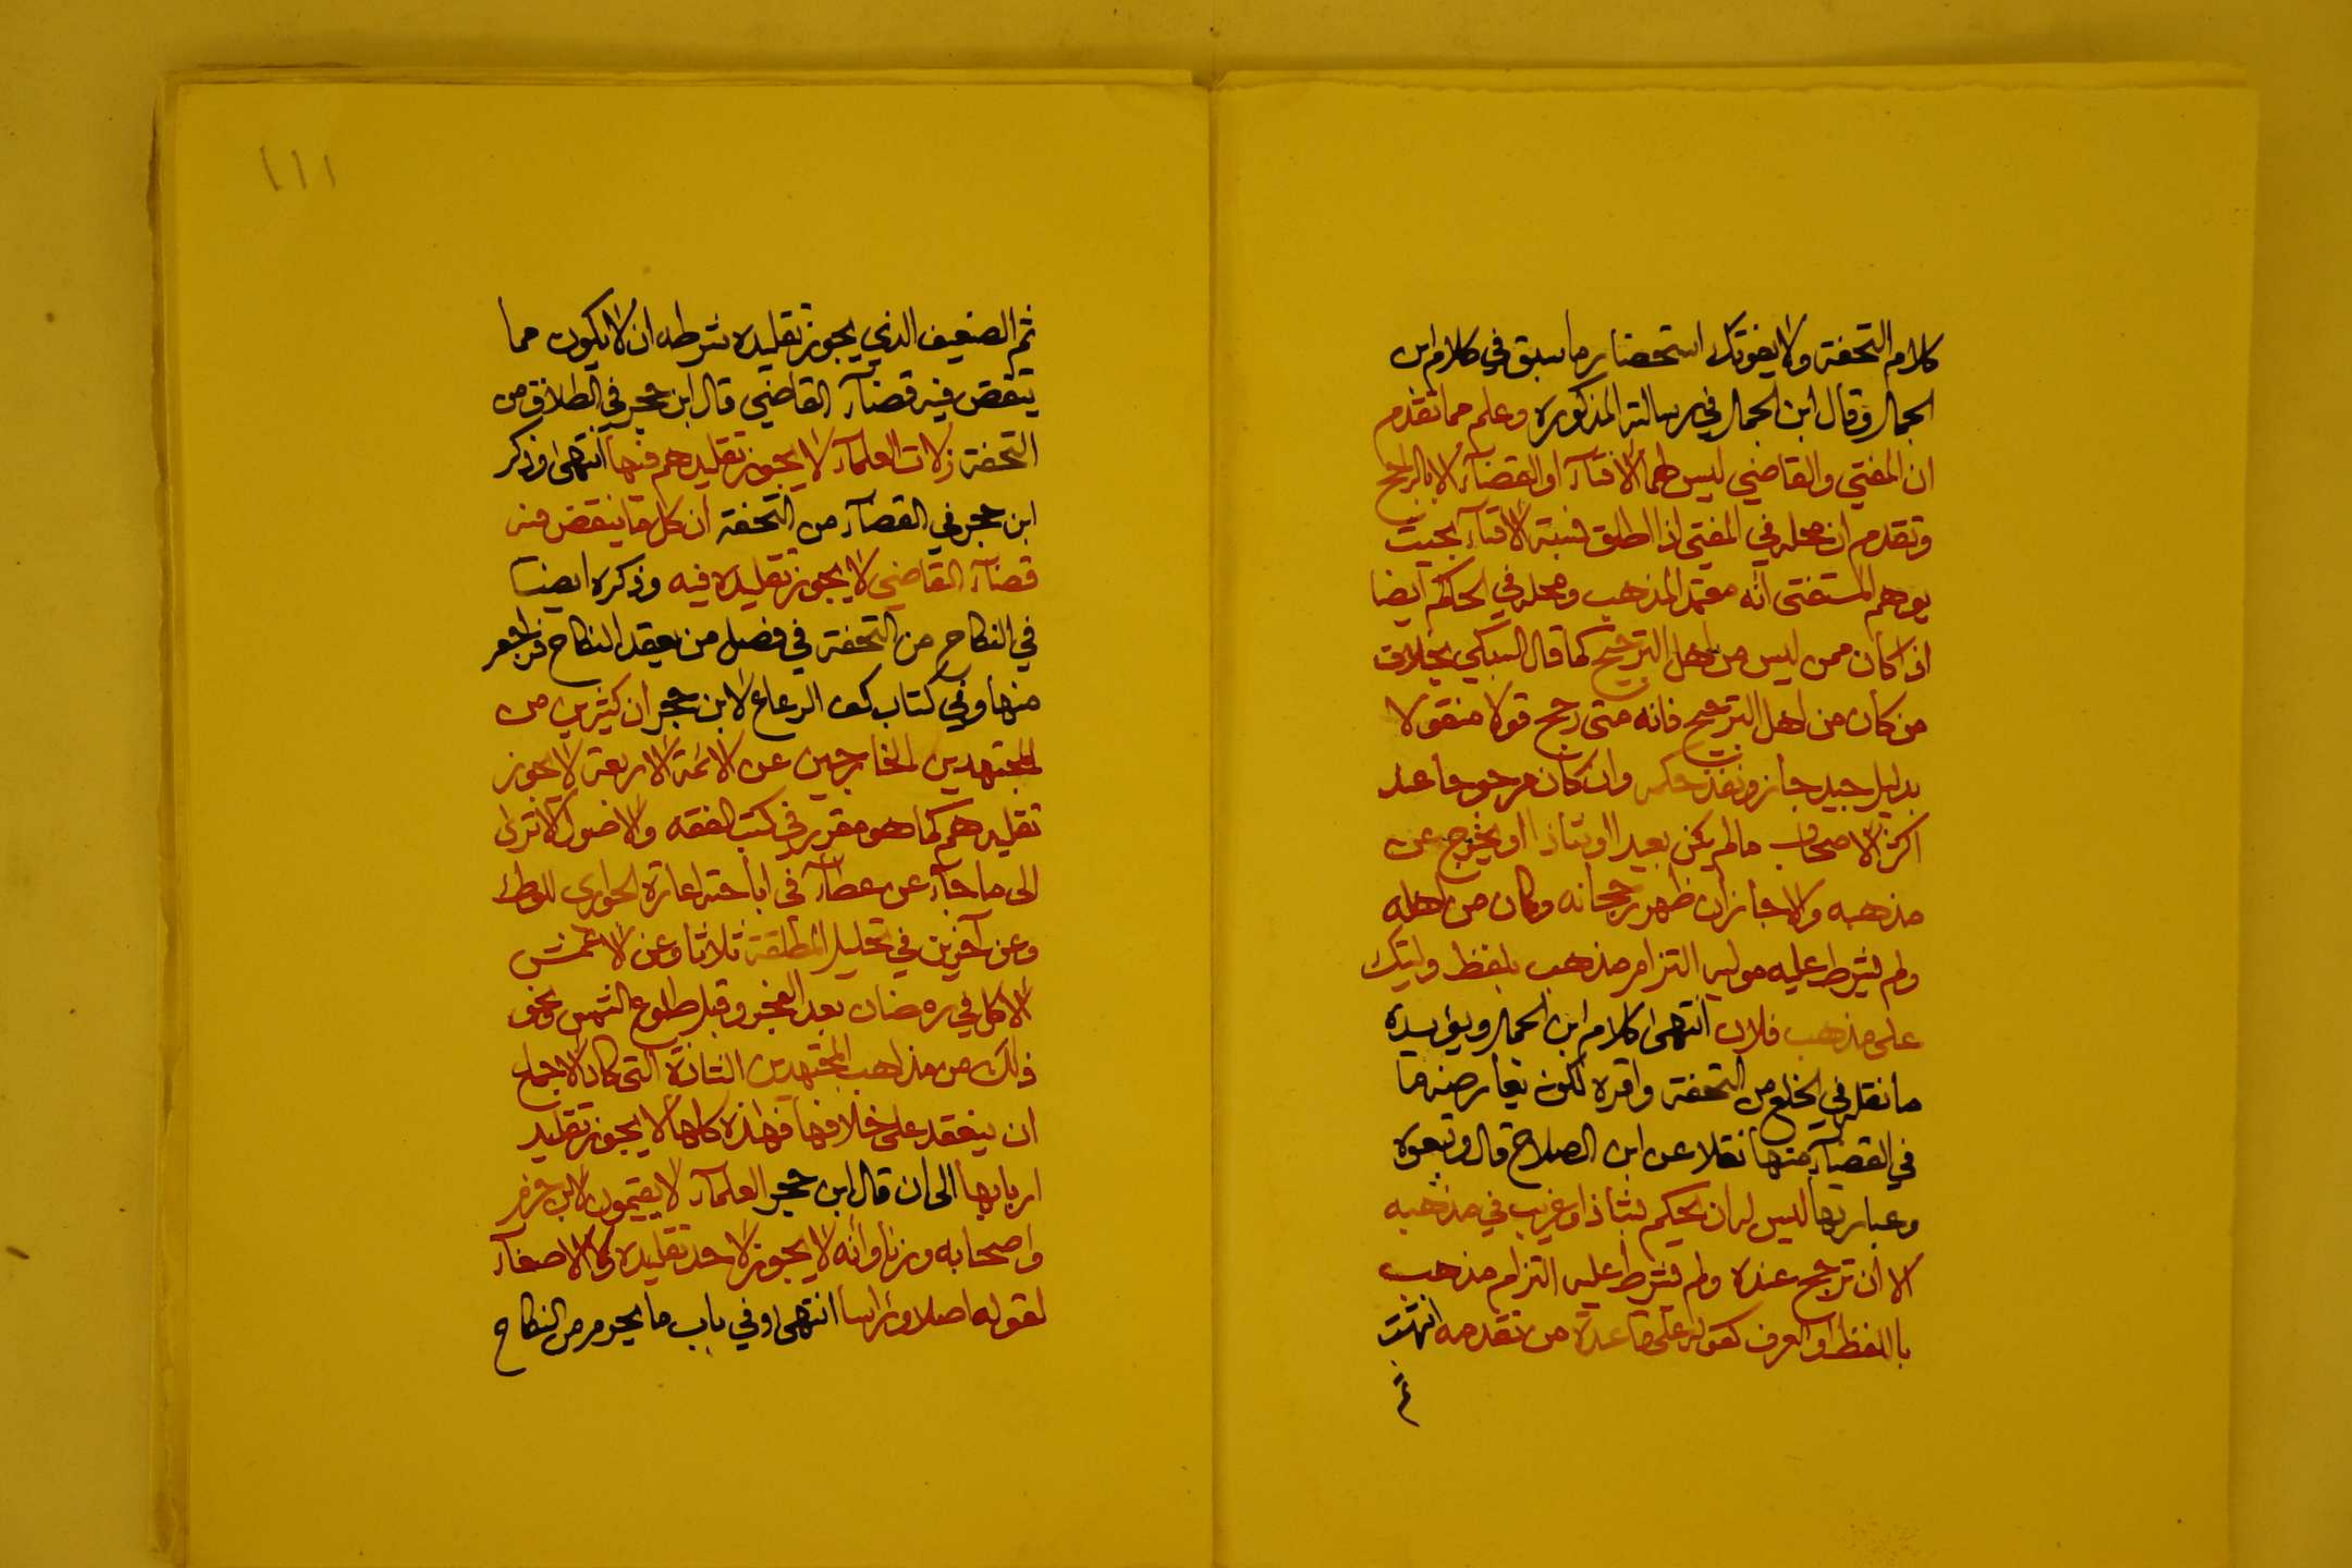 كلام التحفة ولا يفوتك استحضار ما سبق في كلام ابن
الجمال وقال ابن الجمال في رسالته المذكورة وعلم مما تقدم
ان المفتي والقاضي ليس لهما الافتآء او القضآء الا بالراجح
وتقدم ان محله في المفتي اذا اطلق نسبة الافتآء بحيث
يوهم المستفتي انه معتمد المذهب ومحله في الحاكم ايضا
اذا كان ممن ليس من اهل الترجيح كما قال السبكي بخلاف
من كان من اهل الترجيح فانه متى رجح قولا منقولا
بدليل جيد جاز ونفذ حكمه وان كان مرجوحا عند
اكثر الاصحاب ما لم يكن بعيدا او شاذا او يخرج عن
مذهبه والا جاز ان ظهر رجحانه وكان من اهله
ولم يشرط عليه موليه التزام مذهب بلفظ وليتك
على مذهب فلان انتهى كلام ابن الجمال ويؤيده
ما نقله في الخلع من التحفة واقره لكونه يعارضه ما
في القضآء منها نقلا عن ابن الصلاح قال وتبعوه
وعبارتها ليس له ان يحكم بشاذ او غريب في مذهبه
الا ان ترجح عنده ولم يشرط عليه التزام مذهب
باللفظ او العرف كقوله على قاعدة من تقدمه انتهت
١١١
ثم الضعيف الذي يجوز تقليده شرطه ان لا يكون مما
ينقض فيه قضآء القاضي قال ابن حجر في الطلاق من
التحفة زلات العلمآء لا يجوز تقليدهم فيها انتهى وذكر
ابن حجر في القضآء من التحفة ان كل ما ينقض فيه
قضآء القاضي لا يجوز تقليده فيه وذكره ايضا
في النكاح من التحفة في فصل من يعقد النكاح فراجعه
منها وفي كتاب كف الرعاع لابن حجر ان كثيرين من
المجتهدين الخارجين عن الائمة الاربعة لا يجوز
تقليدهم كما هو مقرر في كتب الفقه والاصول الا ترى
الى ما جآء عن عطآء في اباحته اعارة الجواري للوطء
وعن آخرين في تحليل المطلقة ثلاثا وعن الاعمش
الاكل في رمضان بعد الفجر وقبل طلوع الشمس ونحو
ذلك من مذاهب المجتهدين الشاذة التي كاد الاجماع
ان ينعقد على خلافها فهذه كلها لا يجوز تقليد
اربابها الى ان قال ابن حجر العلمآء لا يقيمون لابن حزم
واصحابه وزنا وانه لا يجوز لاحد تقليده ولا الاصغآء
لقوله اصلا ورأسا انتهى وفي باب ما يحرم من النكاح